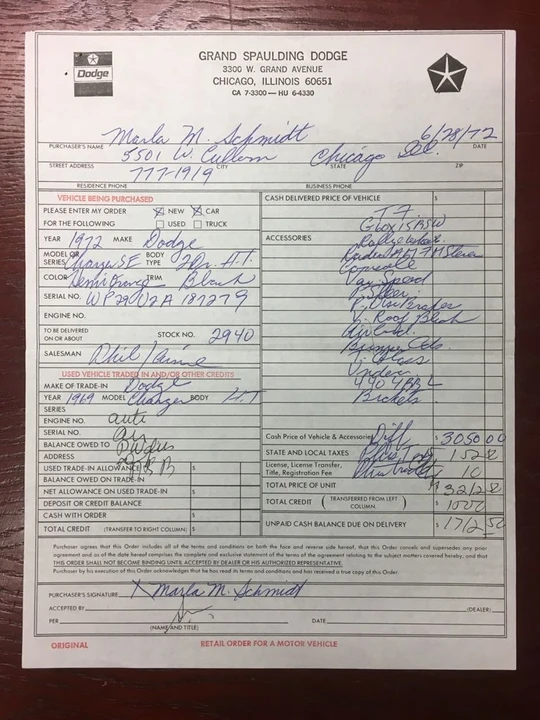 Dodge
GRAND SPAULDING DODGE
3300 W. GRAND AVENUE
CHICAGO, ILLINOIS 60651
CA 7-3300 — HU 6-4330
PURCHASER'S NAME Marla M. Schmidt 6/28/72 DATE
STREET ADDRESS 5501 W. Cullom CITY Chicago STATE Ill. ZIP
777-1919
RESIDENCE PHONE BUSINESS PHONE
VEHICLE BEING PURCHASED
PLEASE ENTER MY ORDER X NEW X CAR
FOR THE FOLLOWING USED TRUCK
YEAR 1972 MAKE Dodge
MODEL OR SERIES Charger SE BODY TYPE 2 Dr. H.T.
COLOR TRIM Black
SERIAL NO. WP29U2A 187279
ENGINE NO.
TO BE DELIVERED ON OR ABOUT STOCK NO. 2940
SALESMAN Phil
USED VEHICLE TRADED IN AND/OR OTHER CREDITS
MAKE OF TRADE-IN Dodge
YEAR 1969 MODEL Charger BODY H.T
SERIES
ENGINE NO. auto
SERIAL NO. air
BALANCE OWED TO
ADDRESS
USED TRADE-IN ALLOWANCE $
BALANCE OWED ON TRADE-IN
NET ALLOWANCE ON USED TRADE-IN $
DEPOSIT OR CREDIT BALANCE
CASH WITH ORDER $
TOTAL CREDIT (TRANSFER TO RIGHT COLUMN) $
CASH DELIVERED PRICE OF VEHICLE $
T.F.
ACCESSORIES
Console
P. Steer.
Air Cond.
Under
440 4 BBL
Buckets
Cash Price of Vehicle & Accessories Diff $ 3050 00
STATE AND LOCAL TAXES 152 50
License, License Transfer, Title, Registration Fee 10
TOTAL PRICE OF UNIT $ 3212 50
TOTAL CREDIT (TRANSFERRED FROM LEFT COLUMN.) 1500
UNPAID CASH BALANCE DUE ON DELIVERY $ 1712 50
Purchaser agrees that this Order includes all of the terms and conditions on both the face and reverse side hereof, that this Order cancels and supersedes any prior
agreement and as of the date hereof comprises the complete and exclusive statement of the terms of the agreement relating to the subject matters covered hereby, and that
THIS ORDER SHALL NOT BECOME BINDING UNTIL ACCEPTED BY DEALER OR HIS AUTHORIZED REPRESENTATIVE.
Purchaser by his execution of this Order acknowledges that he has read its terms and conditions and has received a true copy of this Order.
PURCHASER'S SIGNATURE X Marla M. Schmidt
ACCEPTED BY (DEALER)
PER DATE
(NAME AND TITLE)
ORIGINAL RETAIL ORDER FOR A MOTOR VEHICLE